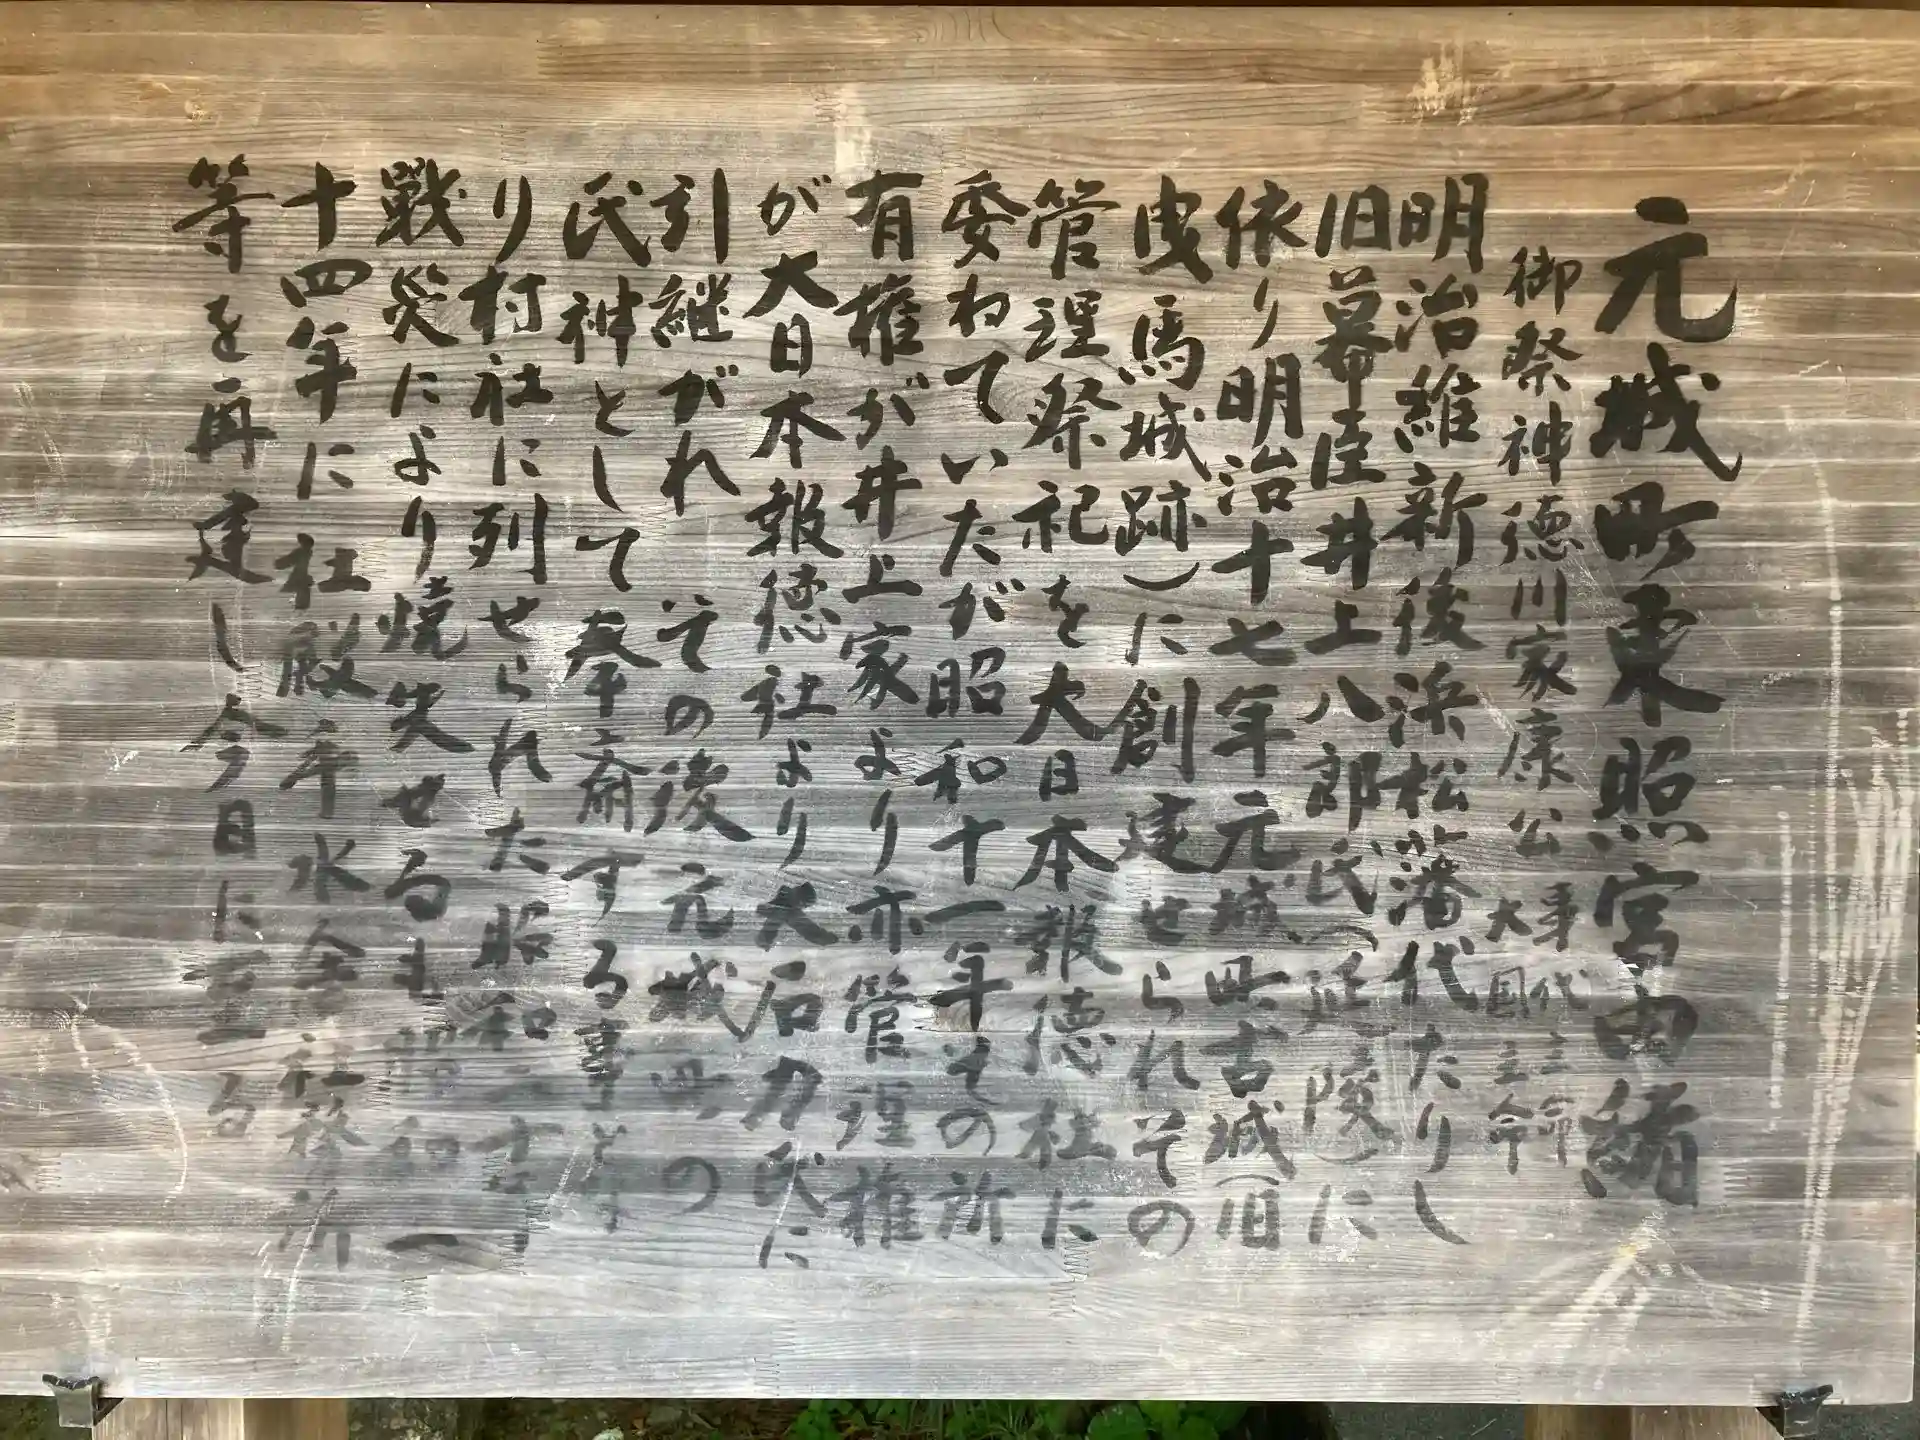 元城町東照宮由緒
御祭神徳川家康公 事代主命 大国主命
明治維新後浜松藩代たりし
旧幕臣井上八郎氏(延陵)に
依り明治十七年元城町古城(旧
曳馬城跡)に創建せられその
管理祭祀を大日本報徳社に
委ねていたが昭和十一年その所
有権が井上家より亦管理権
が大日本報徳社より大石力氏に
引継がれ その後元城町の
氏神として奉斎する事とな
り村社に列せられた昭和二十
戦災により焼失せるも昭和
十四年に社殿手水舎社務所
等を再建し今日に至る